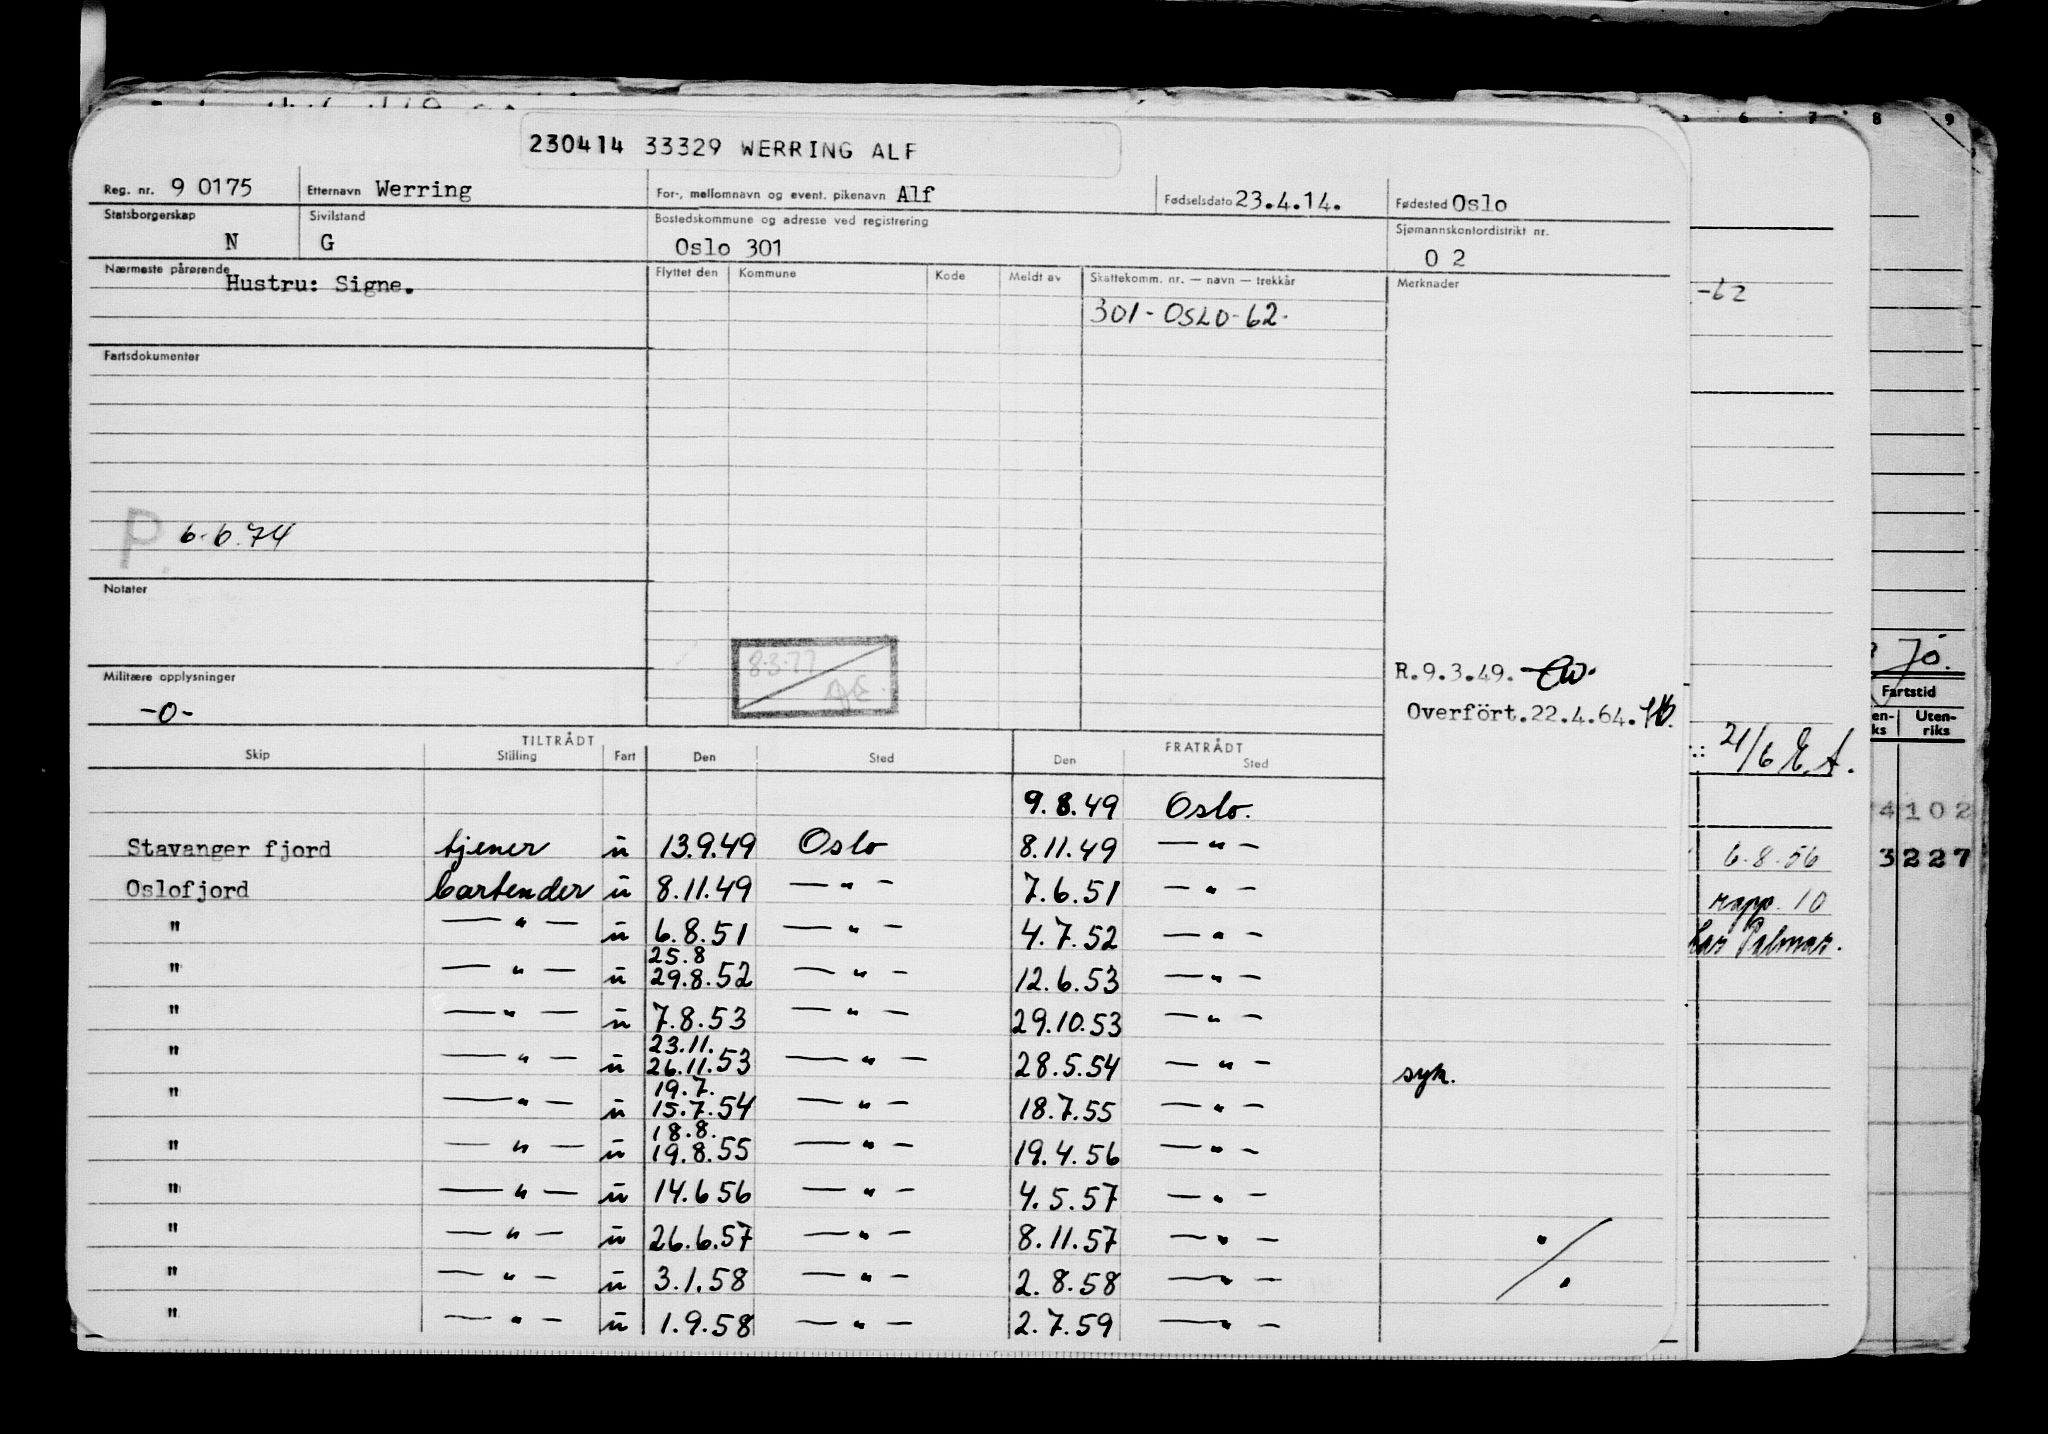 230414 33329 WERRING ALF
Reg. nr. 9 0175 Etternavn Werring For-, mellomnavn og event. pikenavn Alf Fødselsdato 23.4.14. Fødested Oslo
Statsborgerskap N Sivilstand G Bostedskommune og adresse ved registrering Oslo 301 Sjømannskontordistrikt nr. O 2
Nærmeste pårørende Hustru: Signe. Flyttet den Kommune Kode Meldt av Skattekomm. nr. — navn — trekkår Merknader
301 - OSLO - 62.
Fartsdokumenter
P 6.6.74
Notater
8.3.77
Militære opplysninger
-0-
R.9.3.49.
Overfört.22.4.64.
TILTRÅDT FRATRÅDT
Skip Stilling Fart Den Sted Den Sted
9.8.49 Oslo.
Stavanger fjord tjener u 13.9.49 Oslo 8.11.49 — " —
Oslofjord bartender u 8.11.49 — " — 7.6.51 — " —
" — " — u 6.8.51 — " — 4.7.52 — " —
25.8
" — " — u 29.8.52 — " — 12.6.53 — " —
" — " — u 7.8.53 — " — 29.10.53 — " —
23.11.
" — " — u 26.11.53 — " — 28.5.54 — " — syk.
19.7.
" — " — u 15.7.54 — " — 18.7.55 — " —
18.8.
" — " — u 19.8.55 — " — 19.4.56 — " —
" — " — u 14.6 56 — " — 4.5.57 — " —
" — " — u 26.6.57 — " — 8.11.57 — " —
" — " — u 3.1.58 — " — 2.8.58 — " —
" — " — u 1.9.58 — " — 2.7.59 — " —
6 7 8 9
-62
Jö.
Fartstid
en-
ks
Uten-
riks
21/6 E.A.
4102
6.8.56 3227
rapp. 10
Palmar.